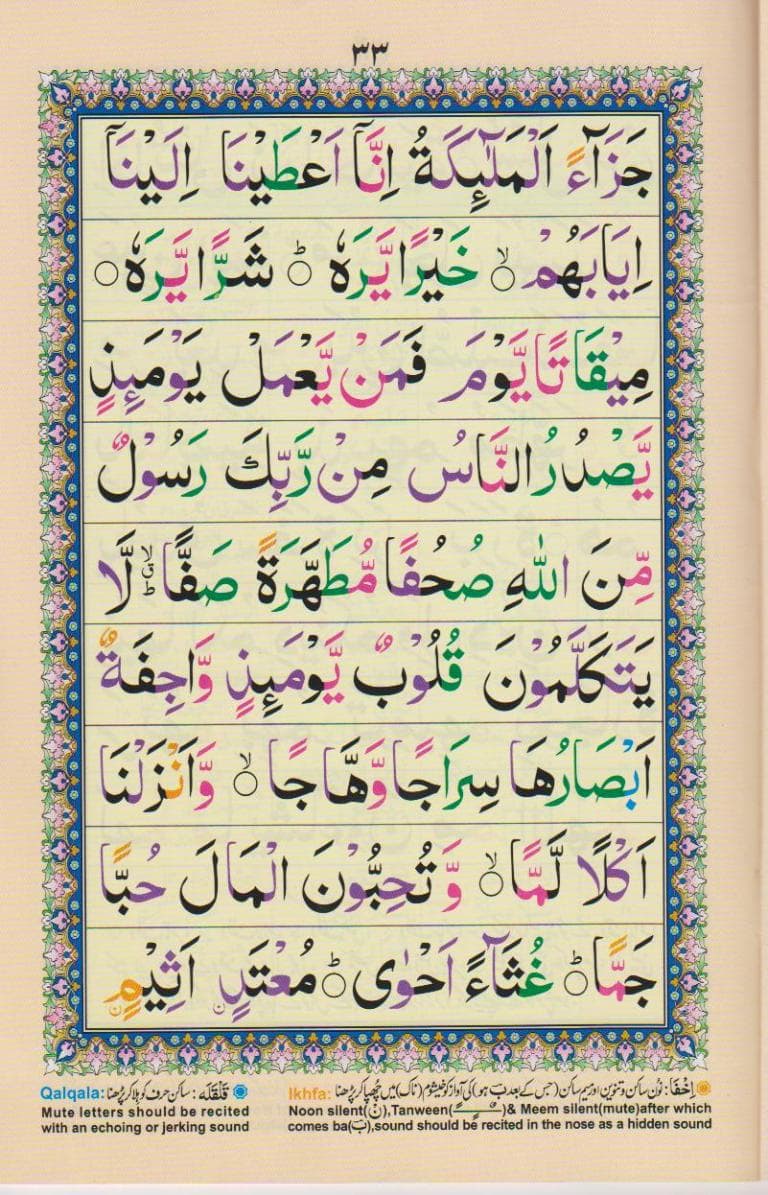 ٣٣
جَزَآءً اَلْمَلٰٓئِكَةُ اِنَّآ اَعْطَيْنَا اِلَيْنَآ
اِيَابَهُمْ ۙ○ خَيْرًا يَّرَهٗ ○ؕ شَرًّا يَّرَهٗ ○
مِيْقَاتًا يَّوْمَ فَمَنْ يَّعْمَلْ يَوْمَئِذٍ
يَّصْدُرُ النَّاسُ مِنْ رَّبِّكَ رَسُوْلٌ
مِّنَ اللّٰهِ صُحُفًا مُّطَهَّرَةً صَفًّا ۙؗق لَّا
يَتَكَلَّمُوْنَ قُلُوْبٌ يَّوْمَئِذٍ وَّاجِفَةٌ
اَبْصَارُهَا سِرَاجًا وَّهَّاجًا ۙ○ وَّاَنْزَلْنَا
اَكْلًا لَّمًّا ۙ○ وَّ تُحِبُّوْنَ الْمَالَ حُبًّا
جَمًّا ○ؕ غُثَآءً اَحْوٰى ○ؕ مُعْتَدٍ اَثِيْمٍ
اِخْفَا: نون ساکن و تنوین اور میم ساکن (جس کے بعد بَ ہو) کی آواز کو خیشوم (ناک) میں چھپا کر پڑھنا :Ikhfa
Noon silent(نْ),Tanween(ـًـٍـٌ)& Meem silent(mute)after which
comes ba(بَ),sound should be recited in the nose as a hidden sound
قَلْقَلَه: ساکن حرف کو ہلا کر پڑھنا :Qalqala
Mute letters should be recited
with an echoing or jerking sound